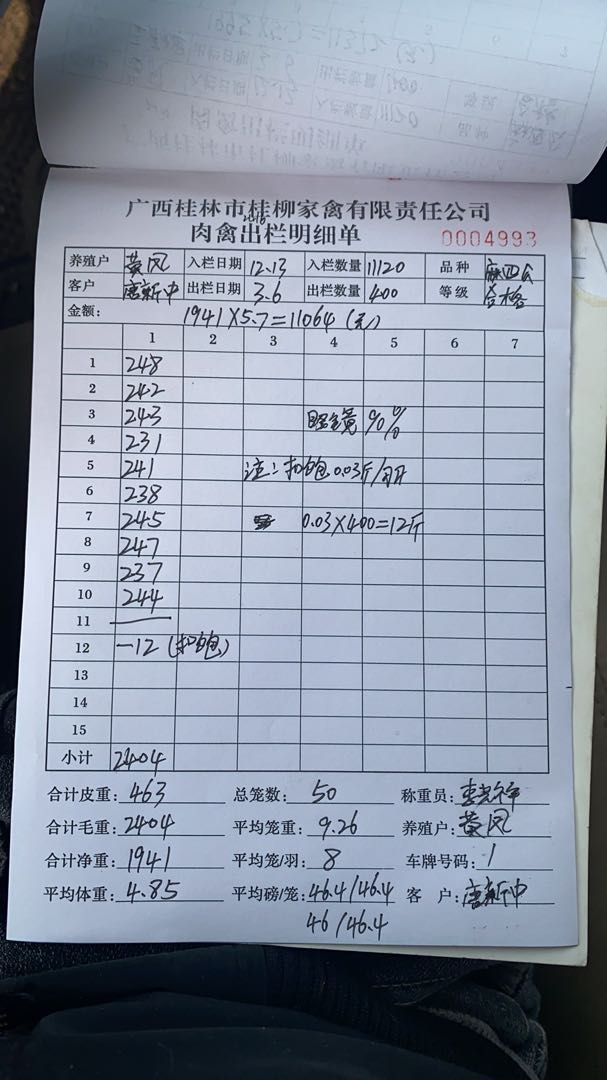 广西桂林市桂柳家禽有限责任公司
肉禽出栏明细单 0004993
养殖户 黄凤 入栏日期 12.13 入栏数量 11120 品种 麻四公
客户 唐新中 出栏日期 3.6 出栏数量 400 等级 合格
金额: 1941×5.7=11064(元)
1 2 3 4 5 6 7
1 248
2 242
3 243 眼镜 90%
4 231
5 241 注:扣饱0.03斤/羽
6 238
7 245 0.03×400=12斤
8 247
9 237
10 244
11
12 -12(扣饱)
13
14
15
小计 2404
合计皮重: 463 总笼数: 50 称重员:
合计毛重: 2404 平均笼重: 9.26 养殖户: 黄凤
合计净重: 1941 平均笼/羽: 8 车牌号码: 1
平均体重: 4.85 平均磅/笼: 46.4/46.4 客户: 唐新中
46/46.4